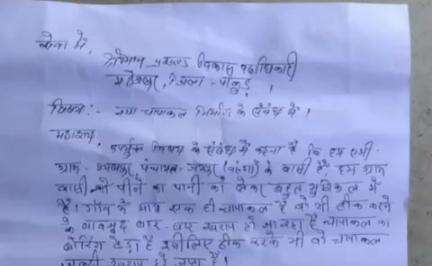 सेवा में,
श्रीमान प्रखण्ड विकास पदाधिकारी
महेशपुर, जिला - पाकुड़।
विषय:- नया चापाकल निर्माण के संबंध में।
महाशय,
उपर्युक्त विषय के संबंध में कहना है कि हम सभी
ग्राम- पंचायत- के वासी हैं। हम ग्राम
वासी को पीने का पानी को लेकर बहुत मुश्किल में
है। गाँव के मात्र एक ही चापाकल है वो भी ठीक करने
के बावजूद बार-बार खराब हो जा रहा है चापाकल का
बोरिंग टेढ़ा है इसीलिए ठीक करने भी वो चापाकल
जल्दी खराब हो जाता है।